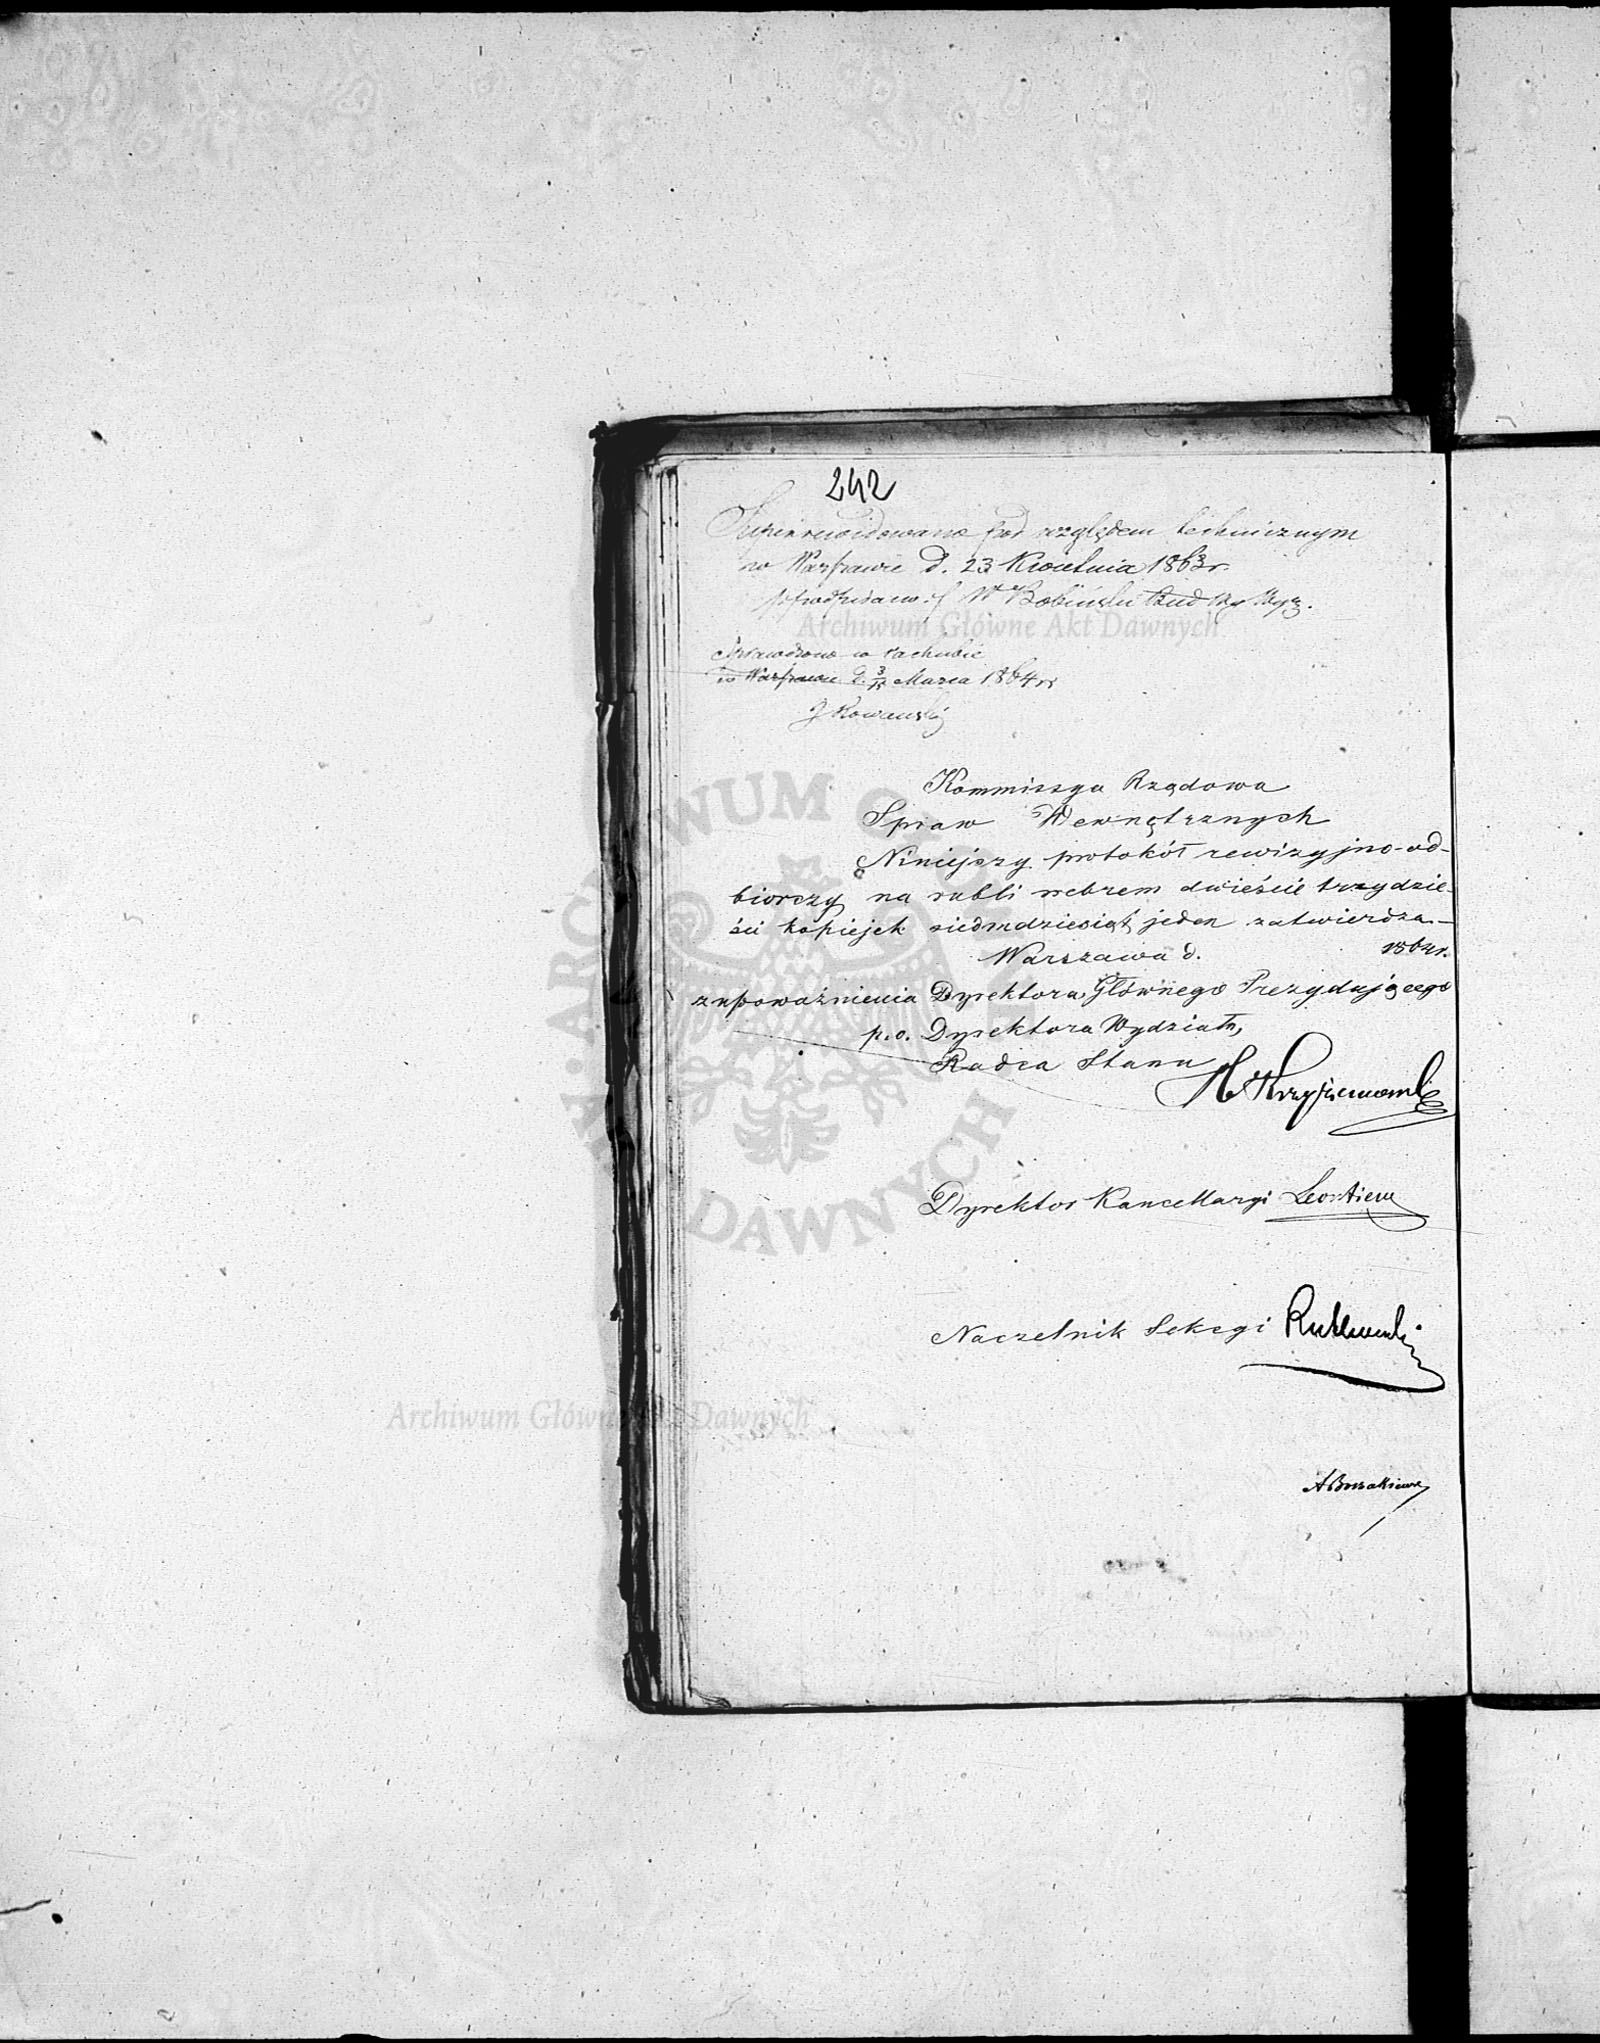 242
Superrewidowano pod względem technicznym
w Warszawie d. 23 Kwietnia 1863 r.
podpisano Bobiński Bud
Sprawdzono w rachubie
w Warszawie d. 3/15 Marca 1864 r
J Kowanski
Kommissya Rządowa
Spraw Wewnętrznych
Niniejszy protokół rewizyjno-od-
biorczy na rubli srebrem dwieście trzydzie-
ści kopiejek siedmdziesiąt jeden zatwierdza.—
Warszawa d. 1864 r.
z upoważnienia Dyrektora Głównego Prezydującego
p.o. Dyrektora Wydziału,
Radca Stanu
Dyrektor Kancellaryi Leontiew
Naczelnik Sekcyi
Archiwum Główne Akt Dawnych
Archiwum Główne Akt Dawnych